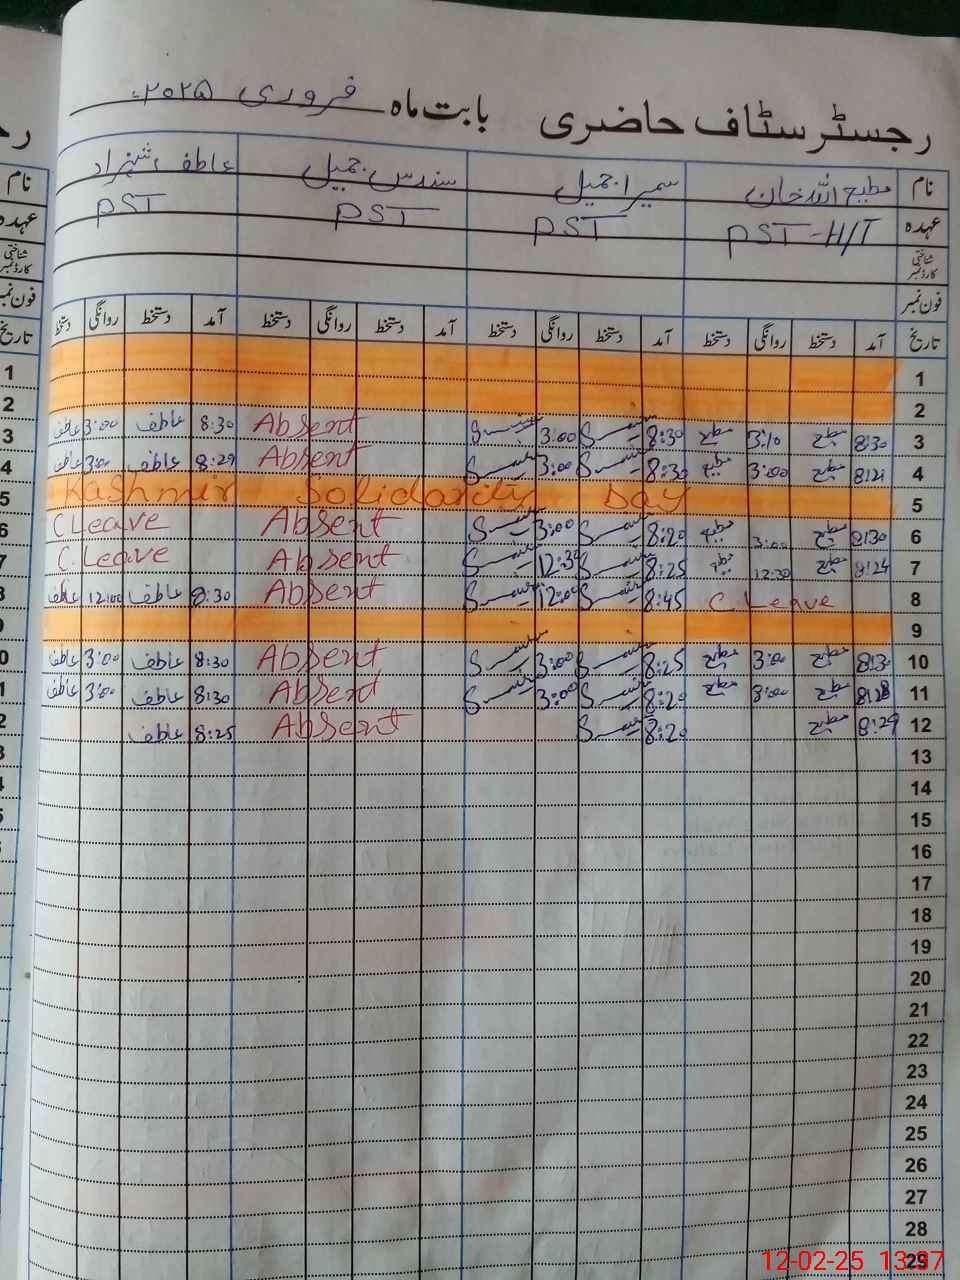 رجسٹر سٹاف حاضری بابت ماہ فروری ۲۰۲۵ء
نام مطیع اللہ خان سمیرا جمیل سندس جمیل عاطف شہزاد
عہدہ PST-H/T PST PST PST
شناختی کارڈ نمبر
فون نمبر
تاریخ آمد دستخط روانگی دستخط آمد دستخط روانگی دستخط آمد دستخط روانگی دستخط آمد دستخط روانگی دستخط
1
2
3 8:30 مطیع 3:10 مطیع 8:30 3:00 Absent 8:30 عاطف 3:00 عاطف
4 8:21 مطیع 3:00 مطیع 8:30 3:00 Absent 8:29 عاطف 3:00 عاطف
5 Kashmir Solidarity Day
6 8:30 مطیع 3:00 مطیع 8:20 3:00 Absent C Leave
7 8:24 مطیع 12:30 مطیع 8:25 12:30 Absent C. Leave
8 C. Leave 8:45 12:00 Absent 8:30 عاطف 12:00 عاطف
9
10 8:30 مطیع 3:00 مطیع 8:25 3:00 Absent 8:30 عاطف 3:00 عاطف
11 8:28 مطیع 3:00 مطیع 8:20 3:00 Absent 8:30 عاطف 3:00 عاطف
12 8:29 مطیع 8:20 Absent 8:25 عاطف
13
14
15
16
17
18
19
20
21
22
23
24
25
26
27
28
29
12-02-25 13:37